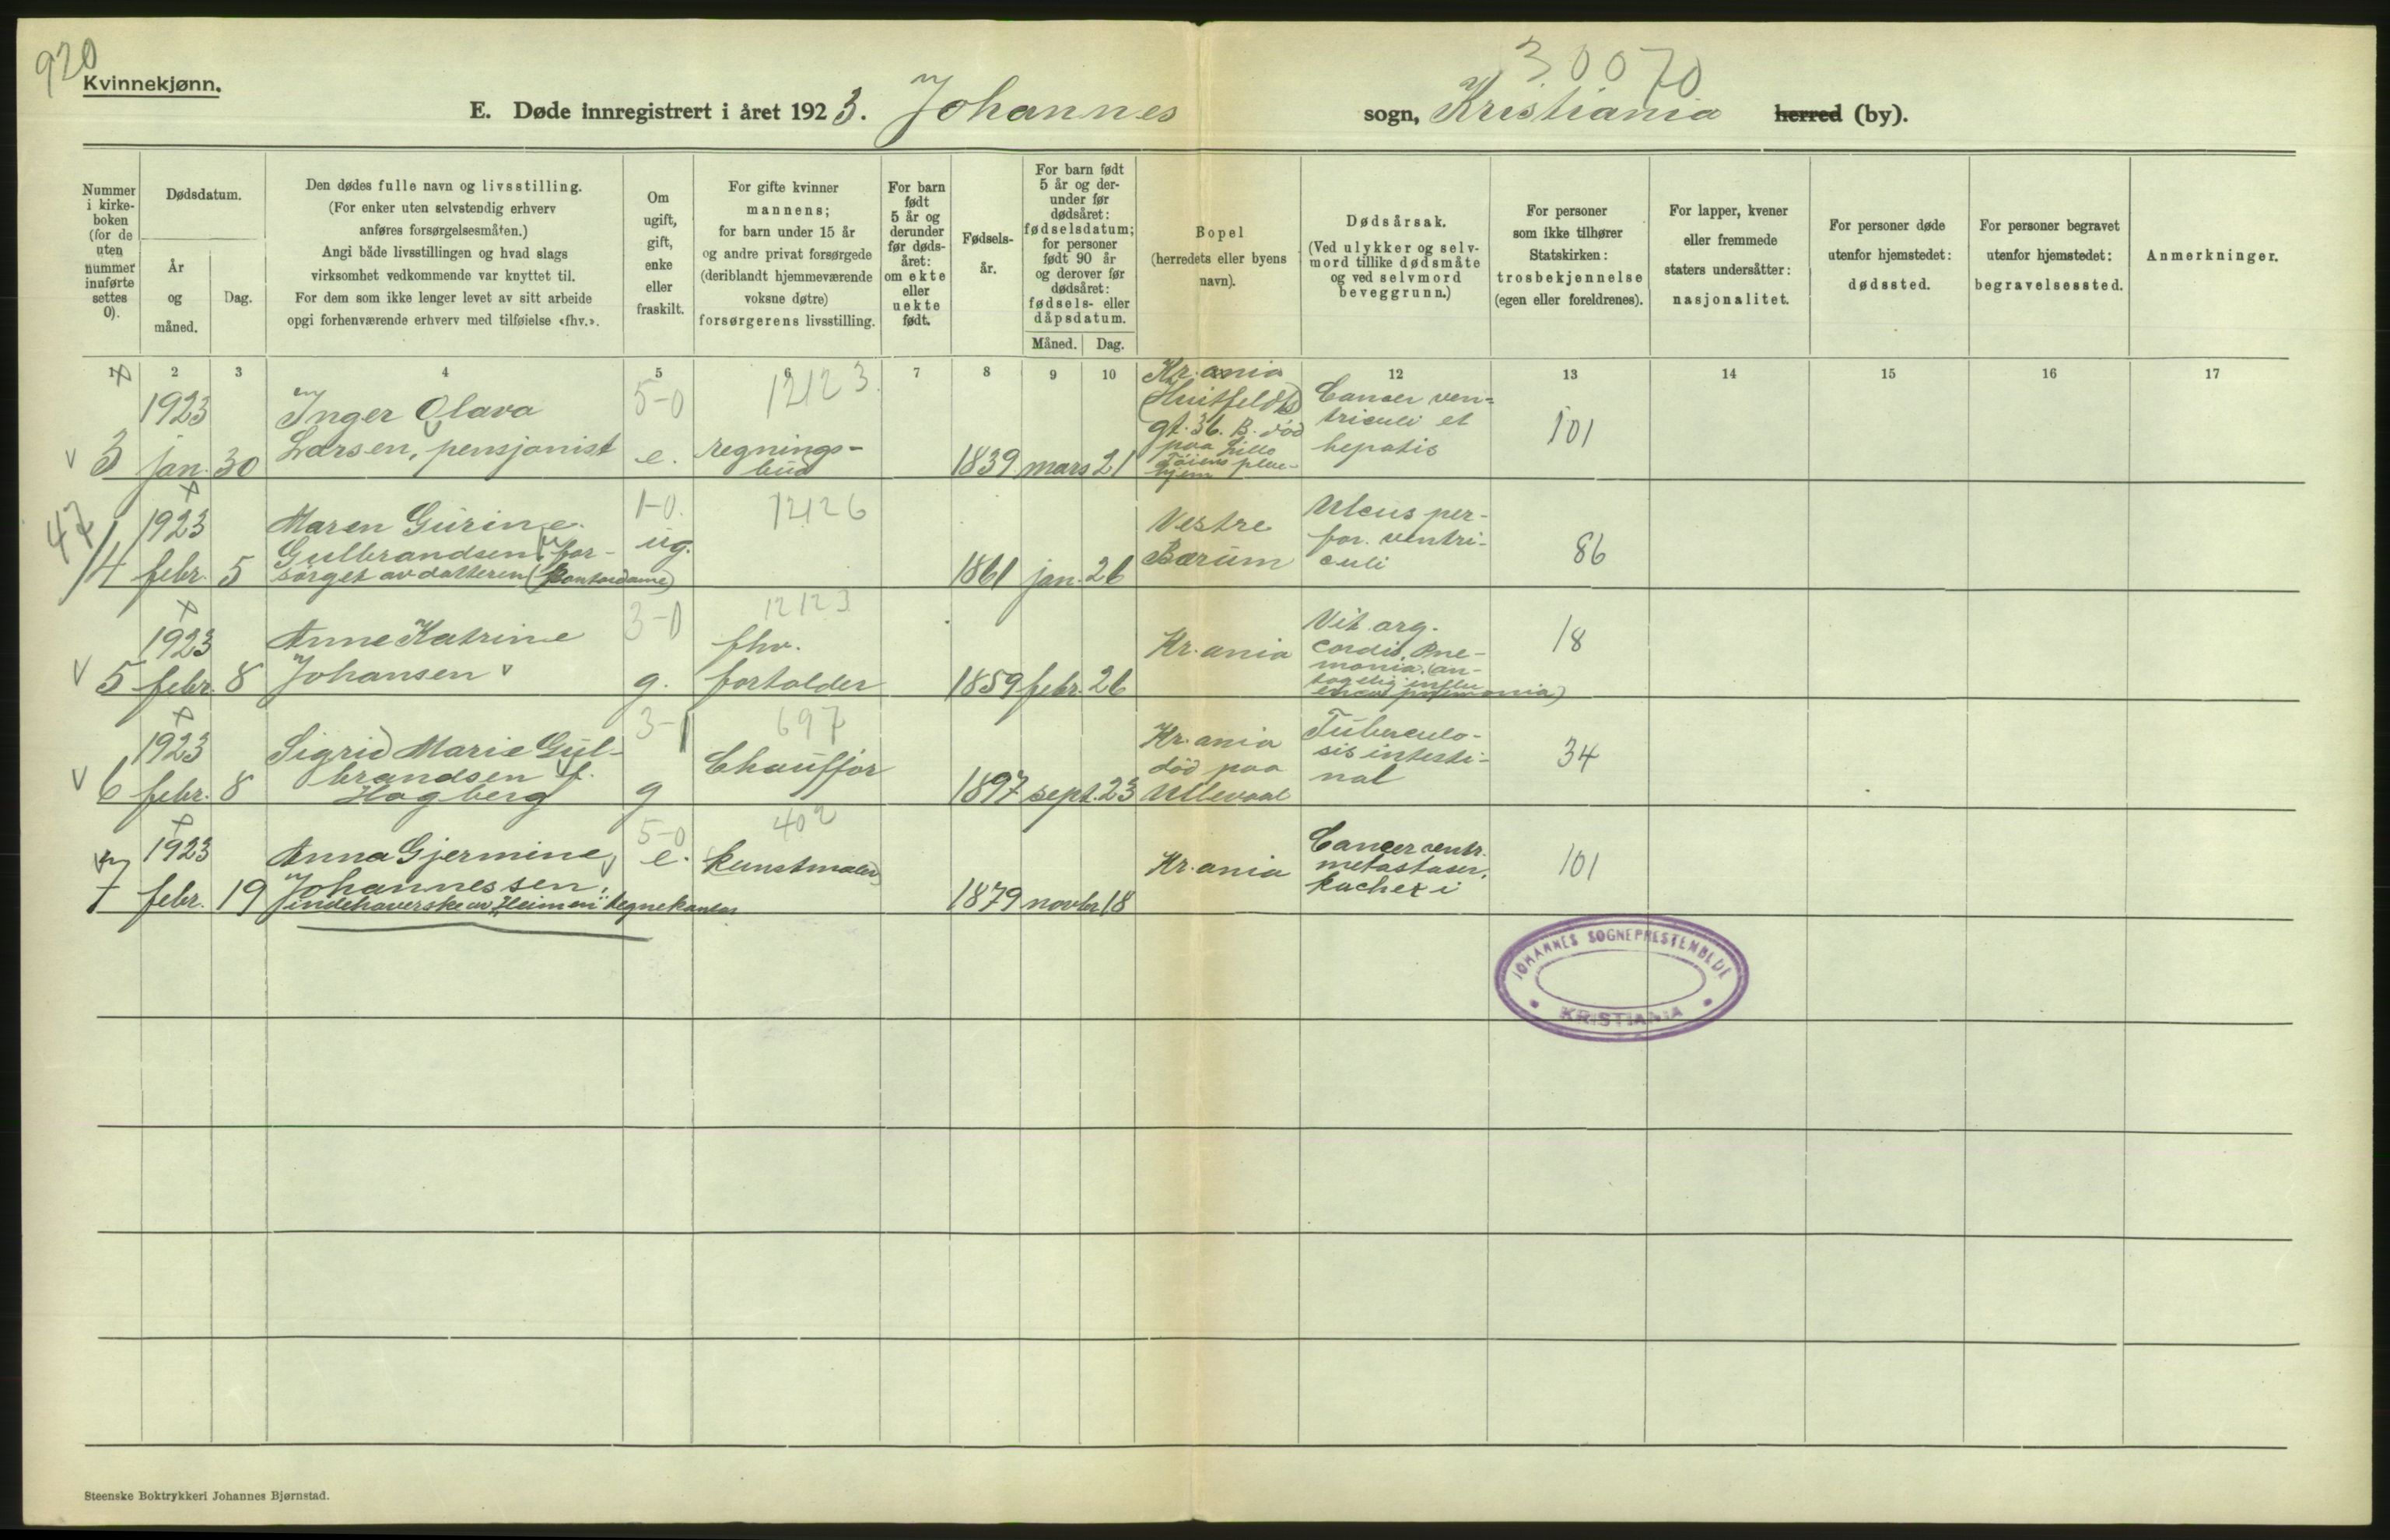 920
Kvinnekjønn.
30070
E. Døde innregistrert i året 1923. Johannes sogn, Kristiania herred (by).
Nummer
i kirke-
boken
(for de
uten
nummer
innførte
settes
0).
Dødsdatum.
År
og
måned.
Dag.
Den dødes fulle navn og livsstilling.
(For enker uten selvstendig erhverv
anføres forsørgelsesmåten.)
Angi både livsstillingen og hvad slags
virksomhet vedkommende var knyttet til.
For dem som ikke lenger levet av sitt arbeide
opgi forhenværende erhverv med tilføielse «fhv.».
Om
ugift,
gift,
enke
eller
fraskilt.
For gifte kvinner
mannens;
for barn under 15 år
og andre privat forsørgede
(deriblandt hjemmeværende
voksne døtre)
forsørgerens livsstilling.
For barn
født
5 år og
derunder
før døds-
året:
om ekte
eller
uekte
født.
Fødsels-
år.
For barn født
5 år og der-
under før
dødsåret:
fødselsdatum;
for personer
født 90 år
og derover før
dødsåret:
fødsels- eller
dåpsdatum.
Måned. Dag.
Bopel
(herredets eller byens
navn).
Dødsårsak.
(Ved ulykker og selv-
mord tillike dødsmåte
og ved selvmord
beveggrunn.)
For personer
som ikke tilhører
Statskirken:
trosbekjennelse
(egen eller foreldrenes).
For lapper, kvener
eller fremmede
staters undersåtter:
nasjonalitet.
For personer døde
utenfor hjemstedet:
dødssted.
For personer begravet
utenfor hjemstedet:
begravelsessted.
Anmerkninger.
1 2 3 4 5 6 7 8 9 10 12 13 14 15 16 17
3
1923
jan. 30
Inger Olava
Larsen, pensjonist
5-0
e.
12123
regnings-
bud
1839 mars 21
Kr.ania
(Huitfeldts
gt. 36. B. død
paa Lille
Tøiens pleie-
hjem
Cancer ven-
triculi et
hepatis
101
47
4
1923
febr. 5
Maren Gurine
Gulbrandsen, for-
sørget av datteren (kontordame)
1-0.
ug.
12126
1861 jan. 26
Vestre
Bærum
Ulcus per-
for. ventri-
culi
86
5
1923
febr. 8
Anne Katrine
Johansen
3-0
g.
12123
fhv.
forvalder
1859 febr. 26
Kr.ania
Vit. org.
cordis. Pne-
monia. (an-
tagelig influ
18
6
1923
febr. 8
Sigrid Marie Gul-
brandsen f.
Hagberg
3-1
g
697
Chauffør
1897 sept. 23
Kr.ania
død paa
Ullevaal
Tuberculo-
sis intesti-
nal
34
7
1923
febr. 19
Anna Gjermine
Johannessen,
indehaverske av "Heimen" tegnekontor
5-0
e.
402
kunstmaler
1879 novbr 18
Kr.ania
Cancer ventr.
metastaser,
kachexi
101
JOHANNES SOGNEPRESTEMBEDE
KRISTIANIA
Steenske Boktrykkeri Johannes Bjørnstad.